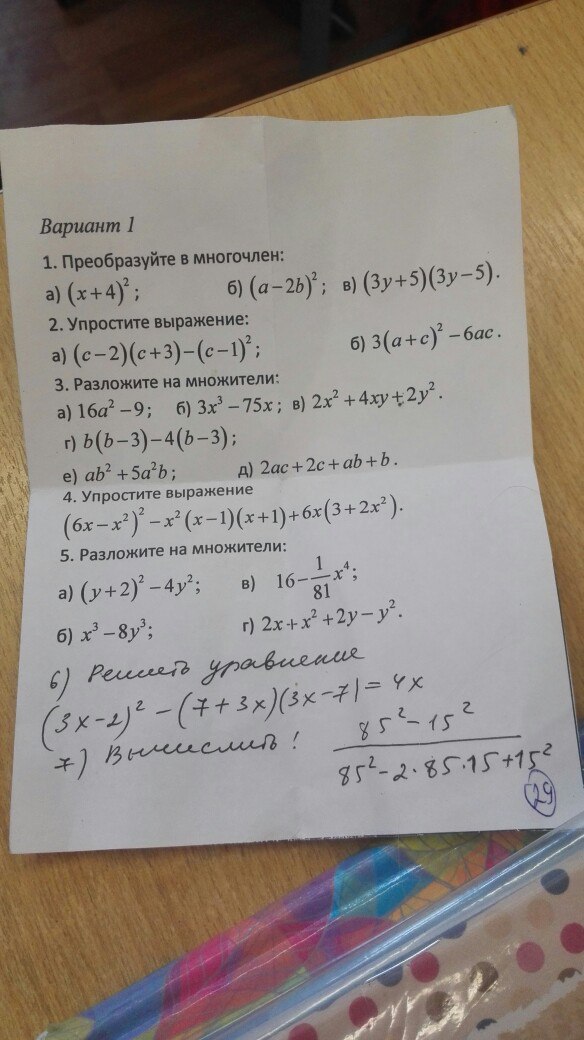 Вариант 1
1. Преобразуйте в многочлен:
а) (x+4)²; б) (a−2b)²; в) (3y+5)(3y−5).
2. Упростите выражение:
а) (c−2)(c+3)−(c−1)²; б) 3(a+c)²−6ac.
3. Разложите на множители:
а) 16a²−9; б) 3x³−75x; в) 2x²+4xy+2y².
г) b(b−3)−4(b−3);
е) ab²+5a²b; д) 2ac+2c+ab+b.
4. Упростите выражение
(6x−x²)²−x²(x−1)(x+1)+6x(3+2x²).
5. Разложите на множители:
а) (y+2)²−4y²; в) 16−1/81x⁴;
б) x³−8y³; г) 2x+x²+2y−y².
6) Решить уравнение
(3x−2)²−(7+3x)(3x−7)=4x
7) Вычислить! 85²−15²
85²−2·85·15+15²
29